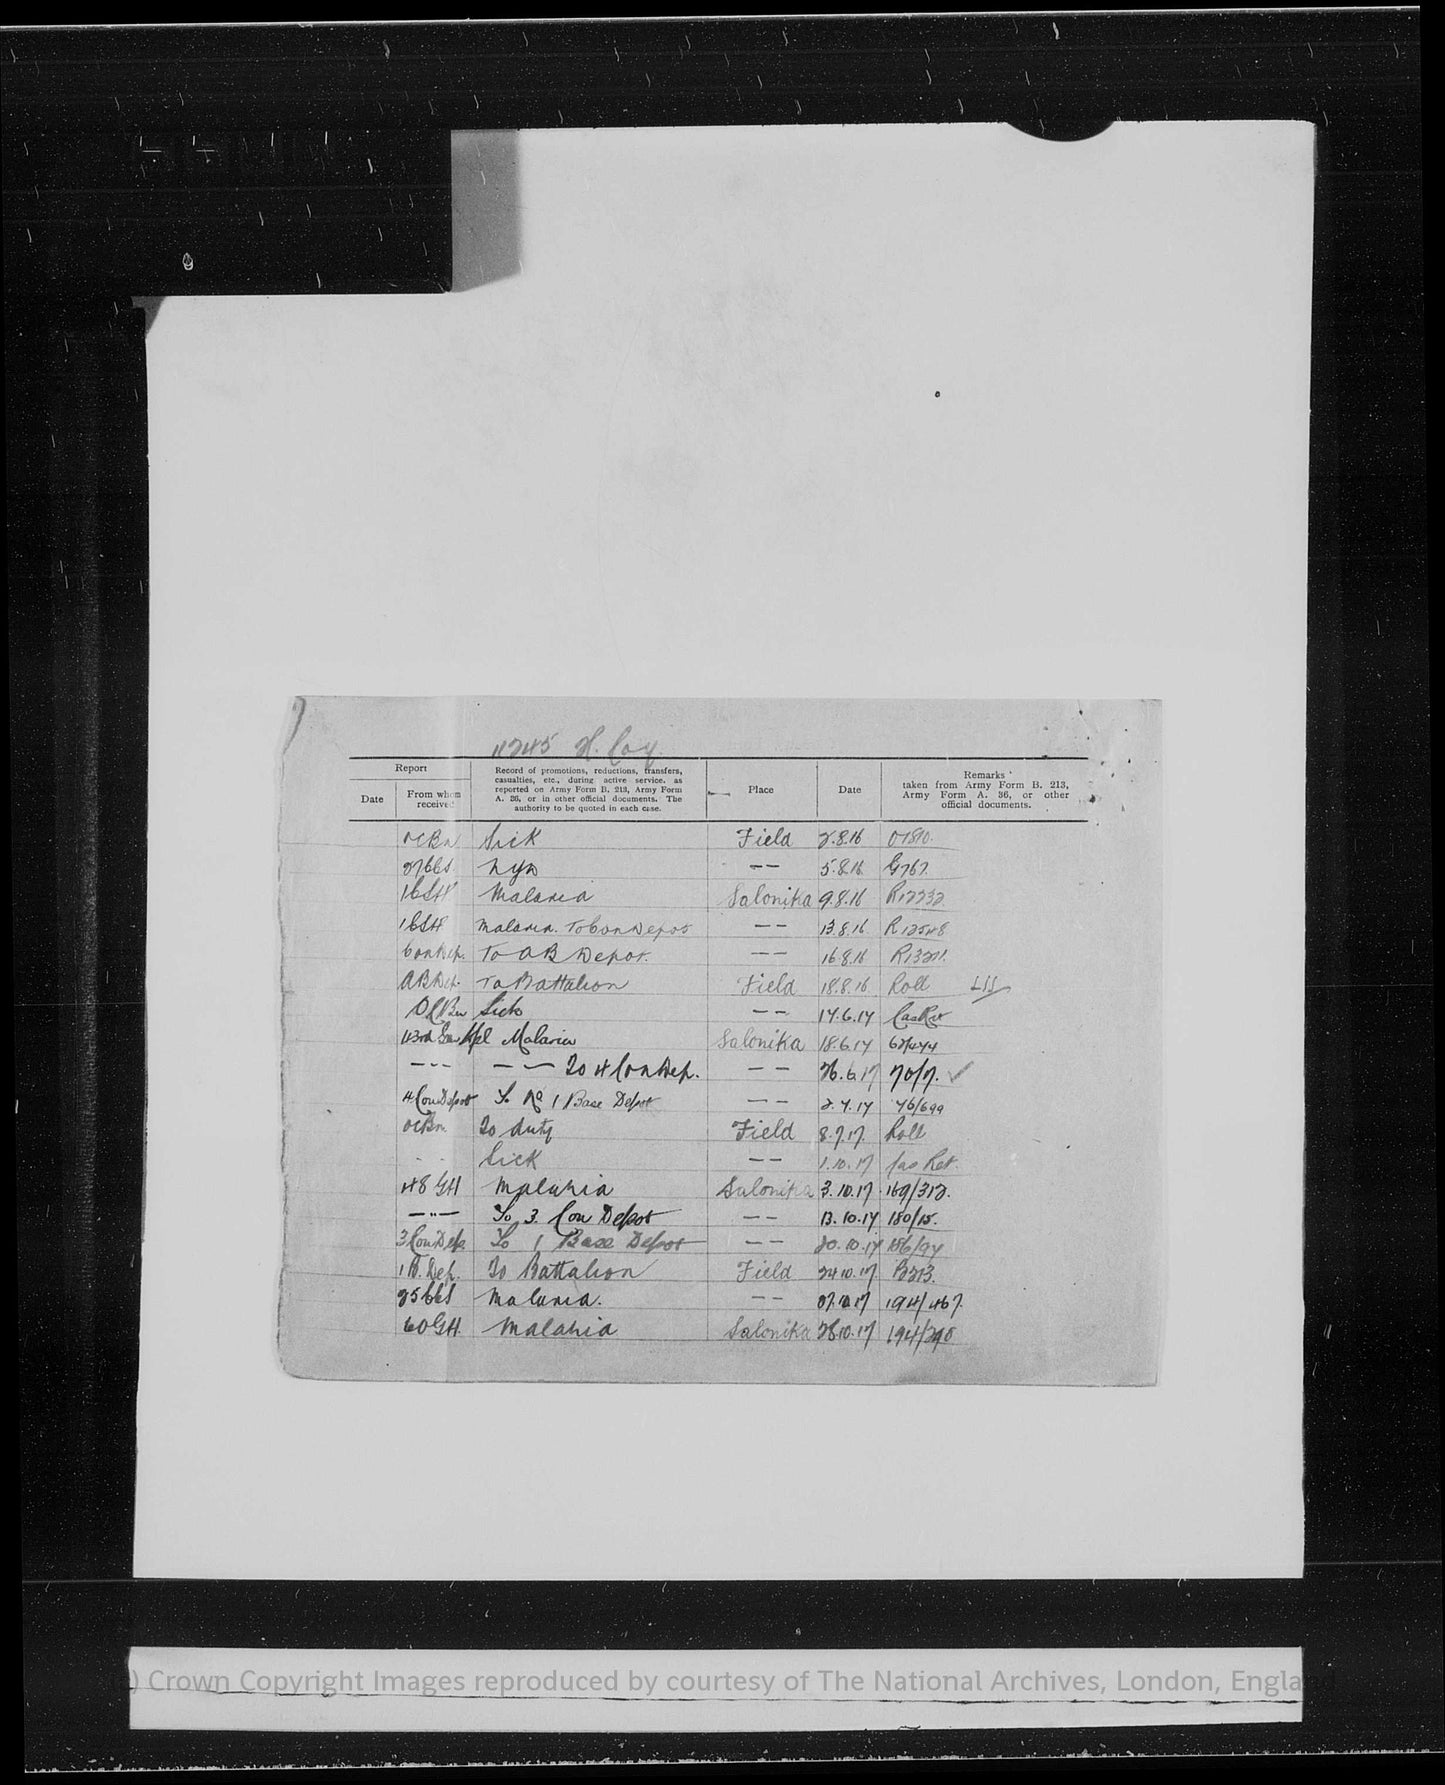 11245 H. Coy
Report
Record of promotions, reductions, transfers, casualties, etc., during active service, as reported on Army Form B. 213, Army Form A. 36, or in other official documents. The authority to be quoted in each case.
Place
Date
Remarks taken from Army Form B. 213, Army Form A. 36, or other official documents.
Date
From whom received
OCBn Sick Field 2.8.16
27CCS NYD — — 5.8.16 G767
Malaria Salonika 9.8.16
Malaria. To Con Depot — — 13.8.16
Con Dep. To AB Depot. — — 16.8.16
AB Dep. To Battalion Field 18.8.16 Roll
OCBn Sick — — 14.6.17 Cas Ret
43rd Gen Hpl Malaria Salonika 18.6.17
— — — — — To 4 Con Dep. — — 26.6.17 70/7.
4 Con Depot To No 1 Base Depot — — 2.7.17 76/699
OCBn To duty Field 8.7.17 Roll
Sick — — 1.10.17 Cas Ret.
48 GH Malaria Salonika 3.10.17 169/312.
— " — To 3. Con Depot — — 13.10.17 180/15.
3 Con Dep To 1 Base Depot — — 20.10.17 186/97
1 B. Dep. To Battalion Field 24.10.17 B213.
25 CCS Malaria. — — 27.10.17 194/467
60 GH Malaria Salonika 28.10.17 194/290
) Crown Copyright Images reproduced by courtesy of The National Archives, London, England